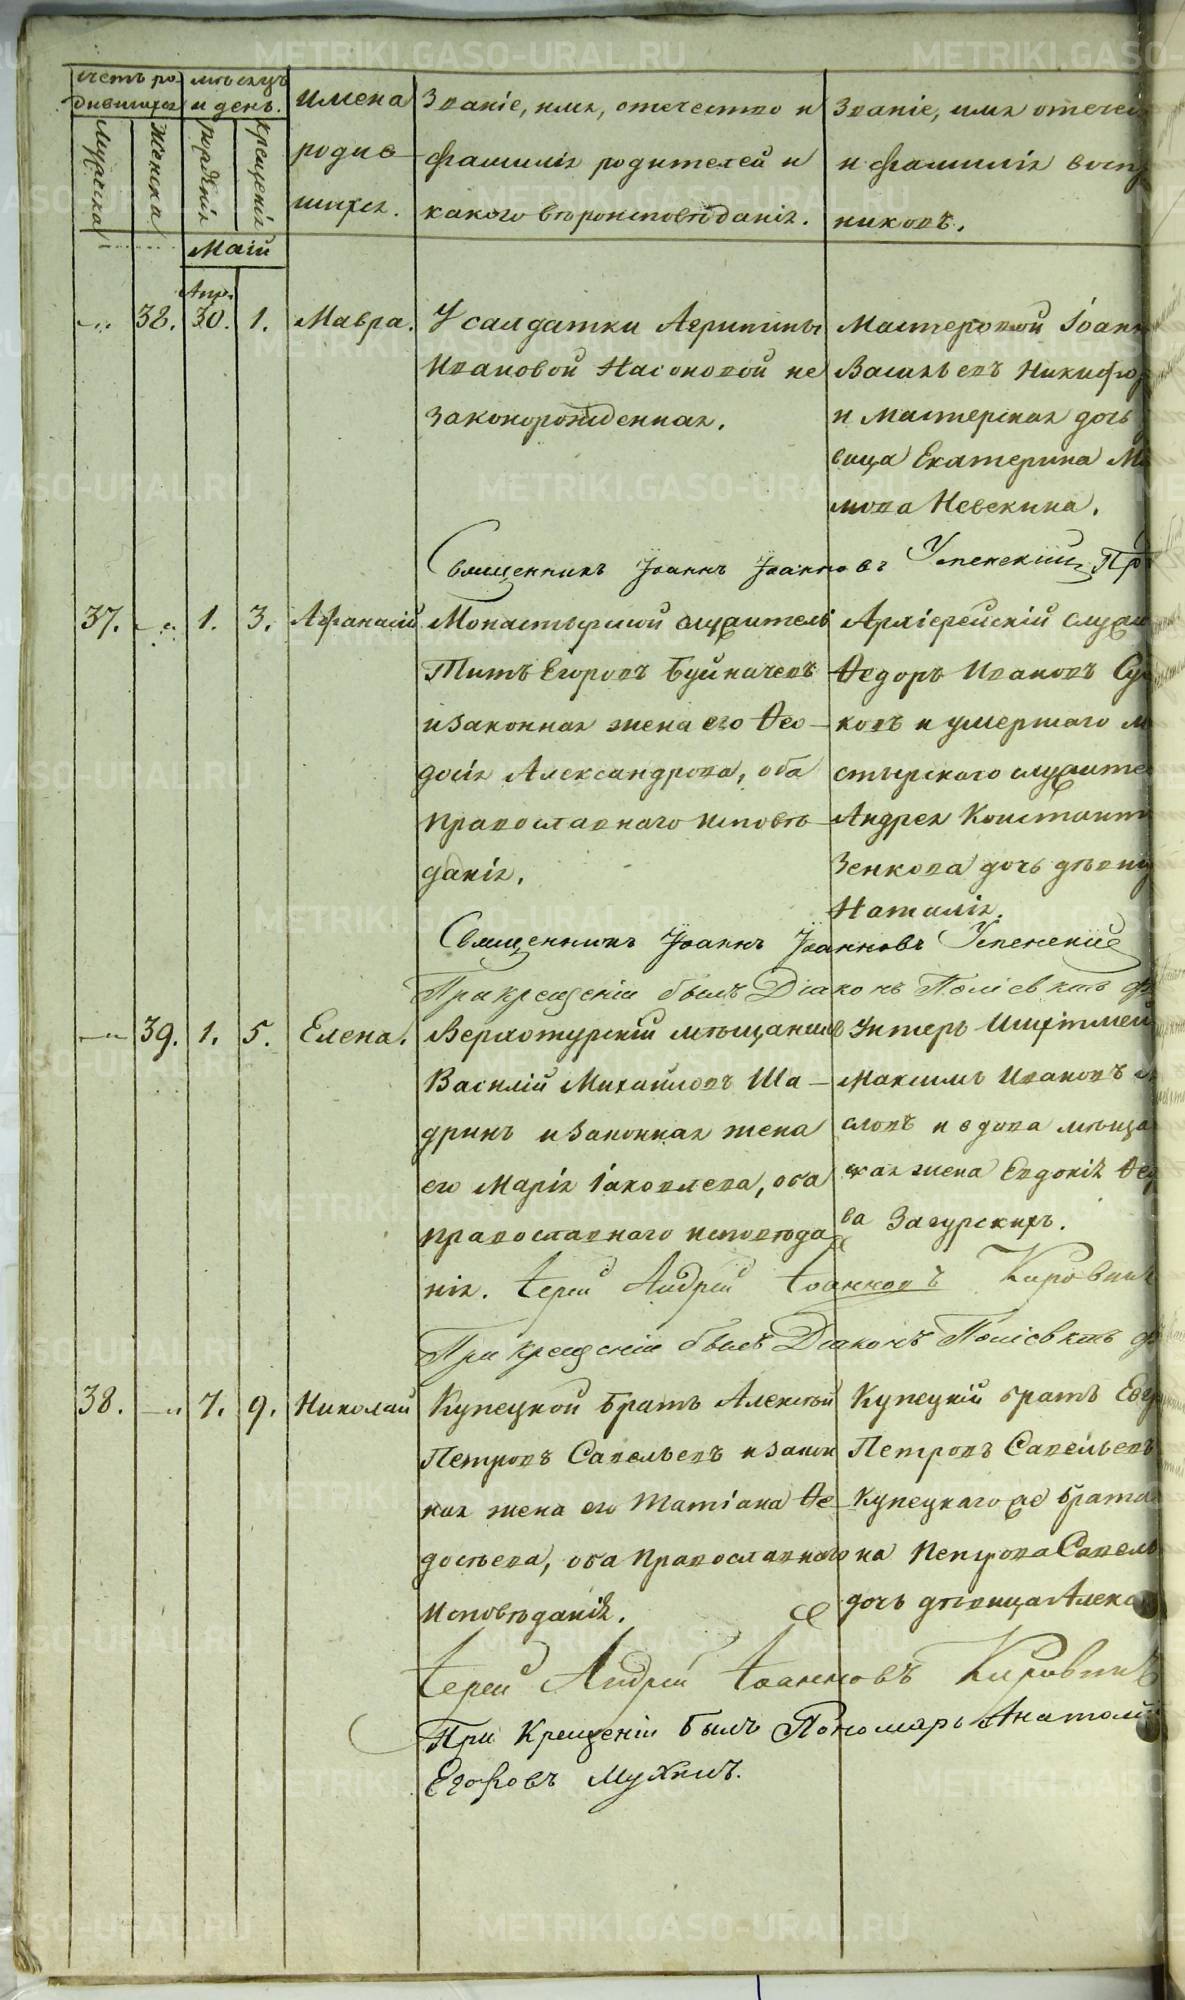 Счетъ ро-
дившихся
Мужеска
Женска
Мѣсяцъ
и день.
рожденія
крещенія
Имена
родив-
шихся.
Званіе, имя, отечество и
фамилія родителей и
какого вѣроисповѣданія.
Званіе, имя отечес
и фамилія воспр
никовъ.
Маій
Апр.
38. 30. 1. Мавра.
У салдатки Агрипины
Ивановой Насоновой не
законорожденная.
Мастеровой Іоанн
Васильевъ Никифор
и мастерская дочь
вица Екатерина
мова Невекина.
Священникъ Іоаннъ Іоанновъ Успенскій Пр
37. 1. 3. Афанасій
Монастырской служитель
Титъ Егоровъ Буйначевъ
и законная жена его Ѳео-
досія Александрова, оба
православнаго исповѣ-
данія.
Архіерейскій служи
Ѳедоръ Ивановъ Су
ковъ и умершаго м
стырскаго служите
Андрея Константи
Зенкова дочь дѣвиц
Наталія.
Священникъ Іоаннъ Іоанновъ Успенскій
При крещеніи былъ Діаконъ Поліевктъ
39. 1. 5. Елена.
Верхотурскій мѣщанинъ
Василій Михайловъ Ша-
дринъ и законная жена
его Марія Іаковлева, оба
православнаго исповѣда
нія.
Унтеръ Шихтмей
Максимъ Ивановъ
словъ и вдова мѣща
ская жена Евдокія Ѳед
ва Загурскихъ.
Іерей Андрей Іоанновъ Кировини
При крещеніи былъ Діаконъ Поліевктъ
38. 7. 9. Николай
Купецкой братъ Алексѣй
Петровъ Савельевъ и закон
ная жена его Татіана Ѳе-
досѣева, оба православнаго
исповѣданія.
Купецкій братъ Евг
Петровъ Савельевъ
Купецкаго же брата
на Петрова Савель
дочь дѣвица Алекс
Іерей Андрей Іоанновъ Кировинъ
При Крещеніи былъ Пономарь Анатолій
Егоровъ Мухинъ.
METRIKI.GASO-URAL.RU